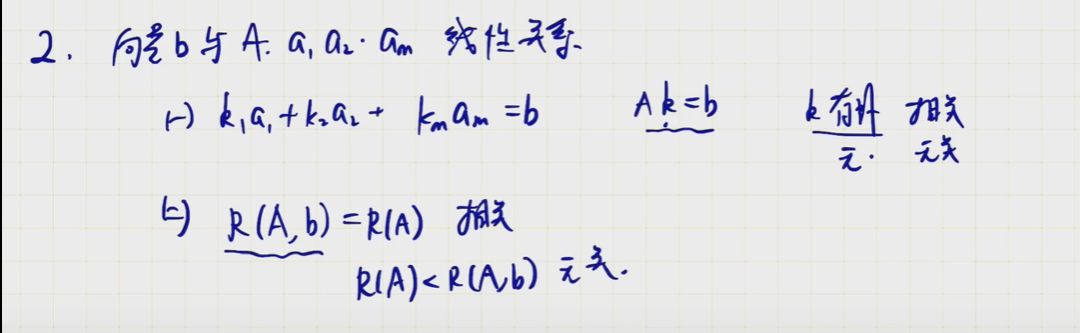 2. 向量b与A. a₁ a₂· aₘ 线性关系.
(一) k₁a₁+k₂a₂+ kₘaₘ=b Ak=b k有解 相关
无· 无关
(二) R(A,b)=R(A) 相关
R(A)<R(A,b) 无关.